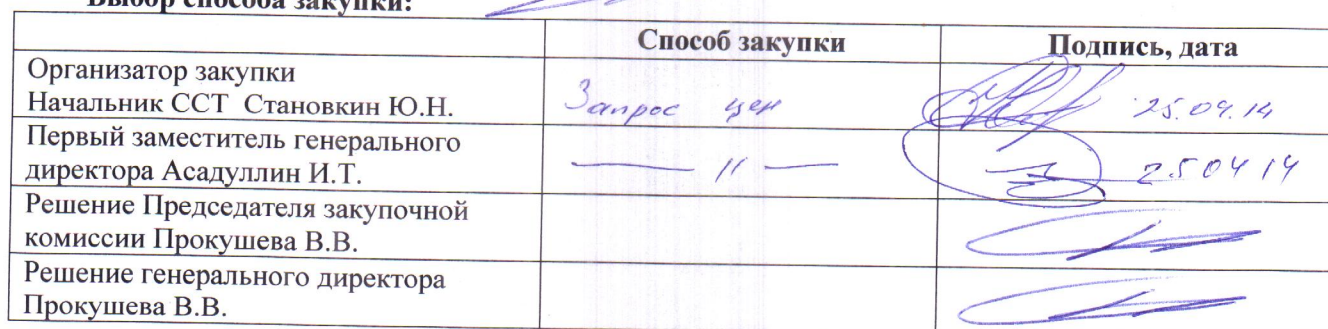 Выбор способа закупки:
Способ закупки
Подпись, дата
Организатор закупки
Начальник ССТ Становкин Ю.Н.
Запрос цен
25.04.14
Первый заместитель генерального
директора Асадуллин И.Т.
— 11 —
25 04 14
Решение Председателя закупочной
комиссии Прокушева В.В.
Решение генерального директора
Прокушева В.В.